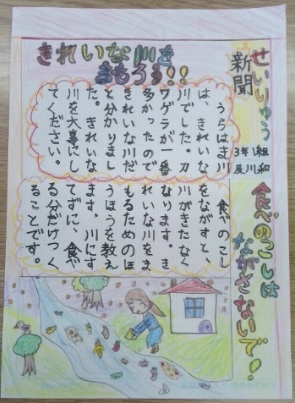 せいりゅう
新聞
3年1組
及川和
食べのこしは
ながさないで!
きれいな川を
まもろう!!
うらはま川
は、きれいな
川でした。カ
ワゲラが一番
多かったので
きれいな川だ
と分かりまし
た。きれいな
川を大事にし
てください。
食べのこし
をながすと、
川がきたなく
なります。き
れいな川をま
もるためのほ
うほうを教え
ます。川にす
てずに、食べ
る分だけつく
ることです。